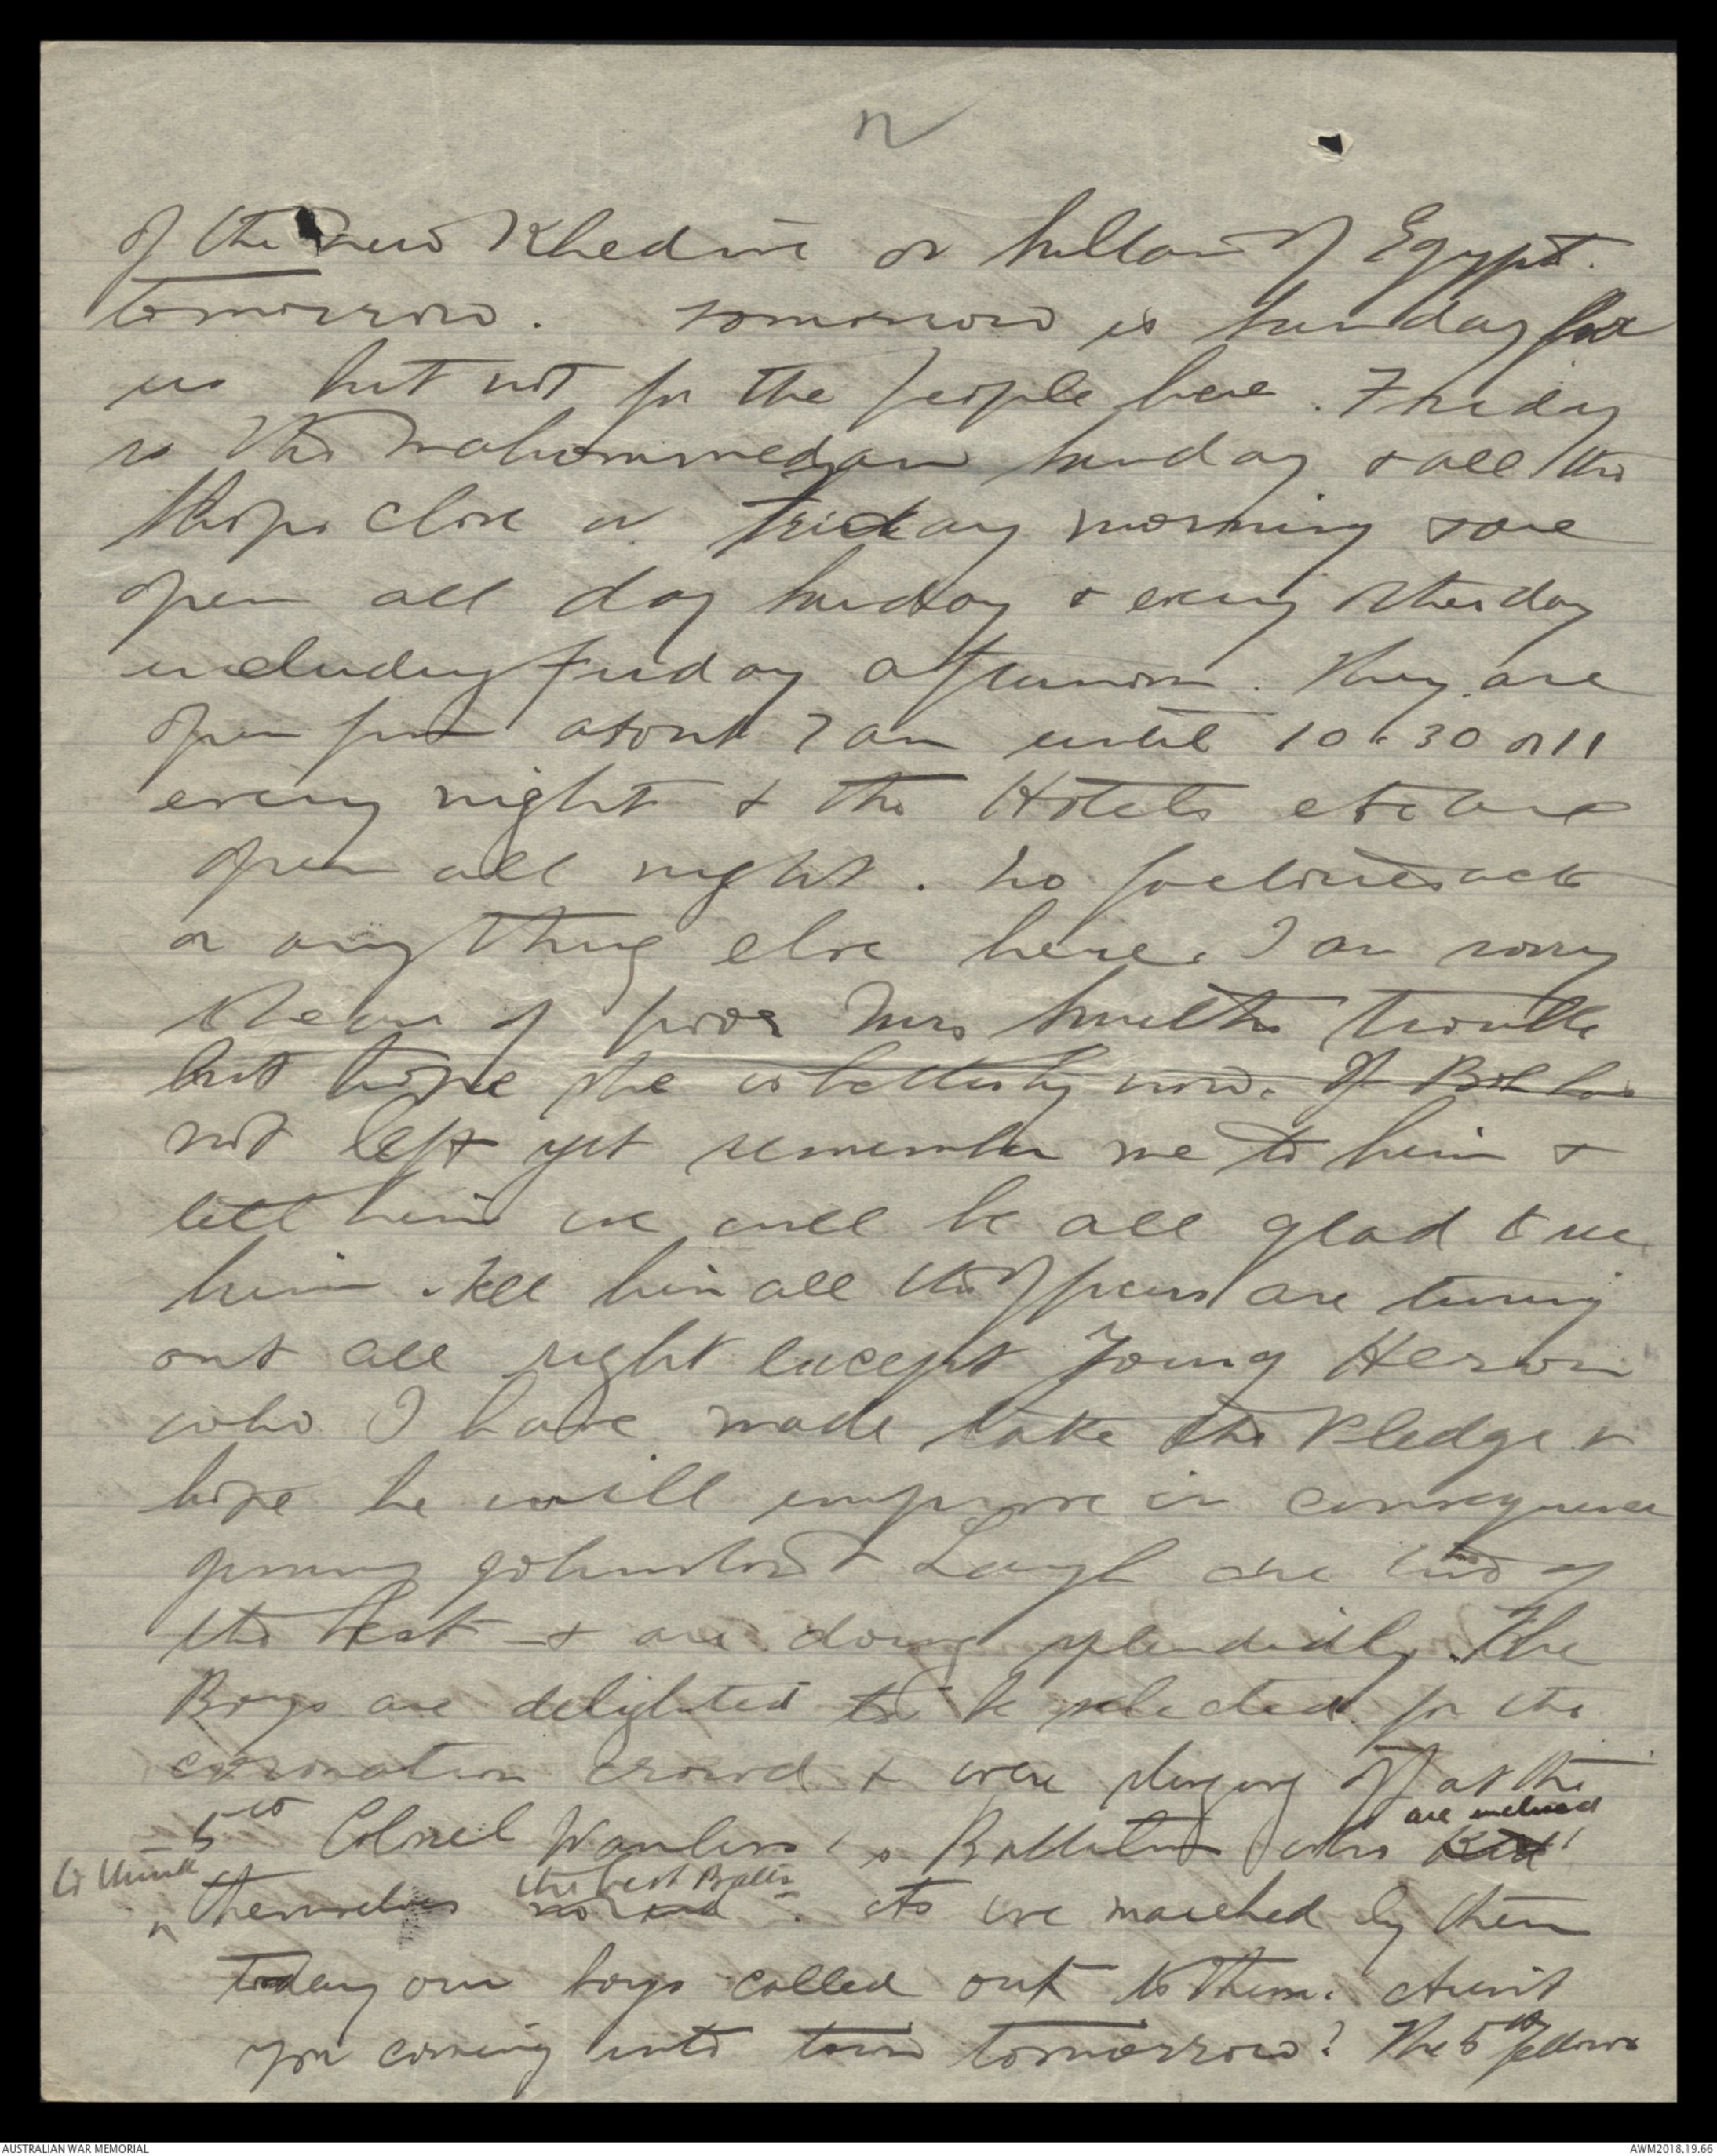 of the new Khedive or Sultan of Egypt.
tomorrow. Tomorrow is Sunday for
us but not for the people here. Friday
is the Mahommedan Sunday & all the
shops close on Friday morning & are
open all day Sunday & every other day
including Friday afternoon. They are
open from about 7 am until 10.30 or 11
every night & the Hotels etc are
open all night. No factories acts
or anything else here. I am sorry
to hear of poor Mrs Smith's trouble
but hope she is better by now. If Bob has
not left yet remember me to him &
tell him we will be all glad to see
him. Tell him all the Officers are turning
out all right except Young Heron
who I have made take the Pledge &
hope he will improve in consequence
Jimmy Johnston & Laugh are two of
the best & are doing splendidly. The
Boys are delighted to be selected for the
coronation crowd & were slinging off at the
are inclined
5th Colonel Wanliss's Battalion who
to think
the best Battn
themselves no end. As we marched by them
today our boys called out to them. Aren't
you coming into town tomorrow? The 5th fellows
AUSTRALIAN WAR MEMORIAL
AWM2018.19.66